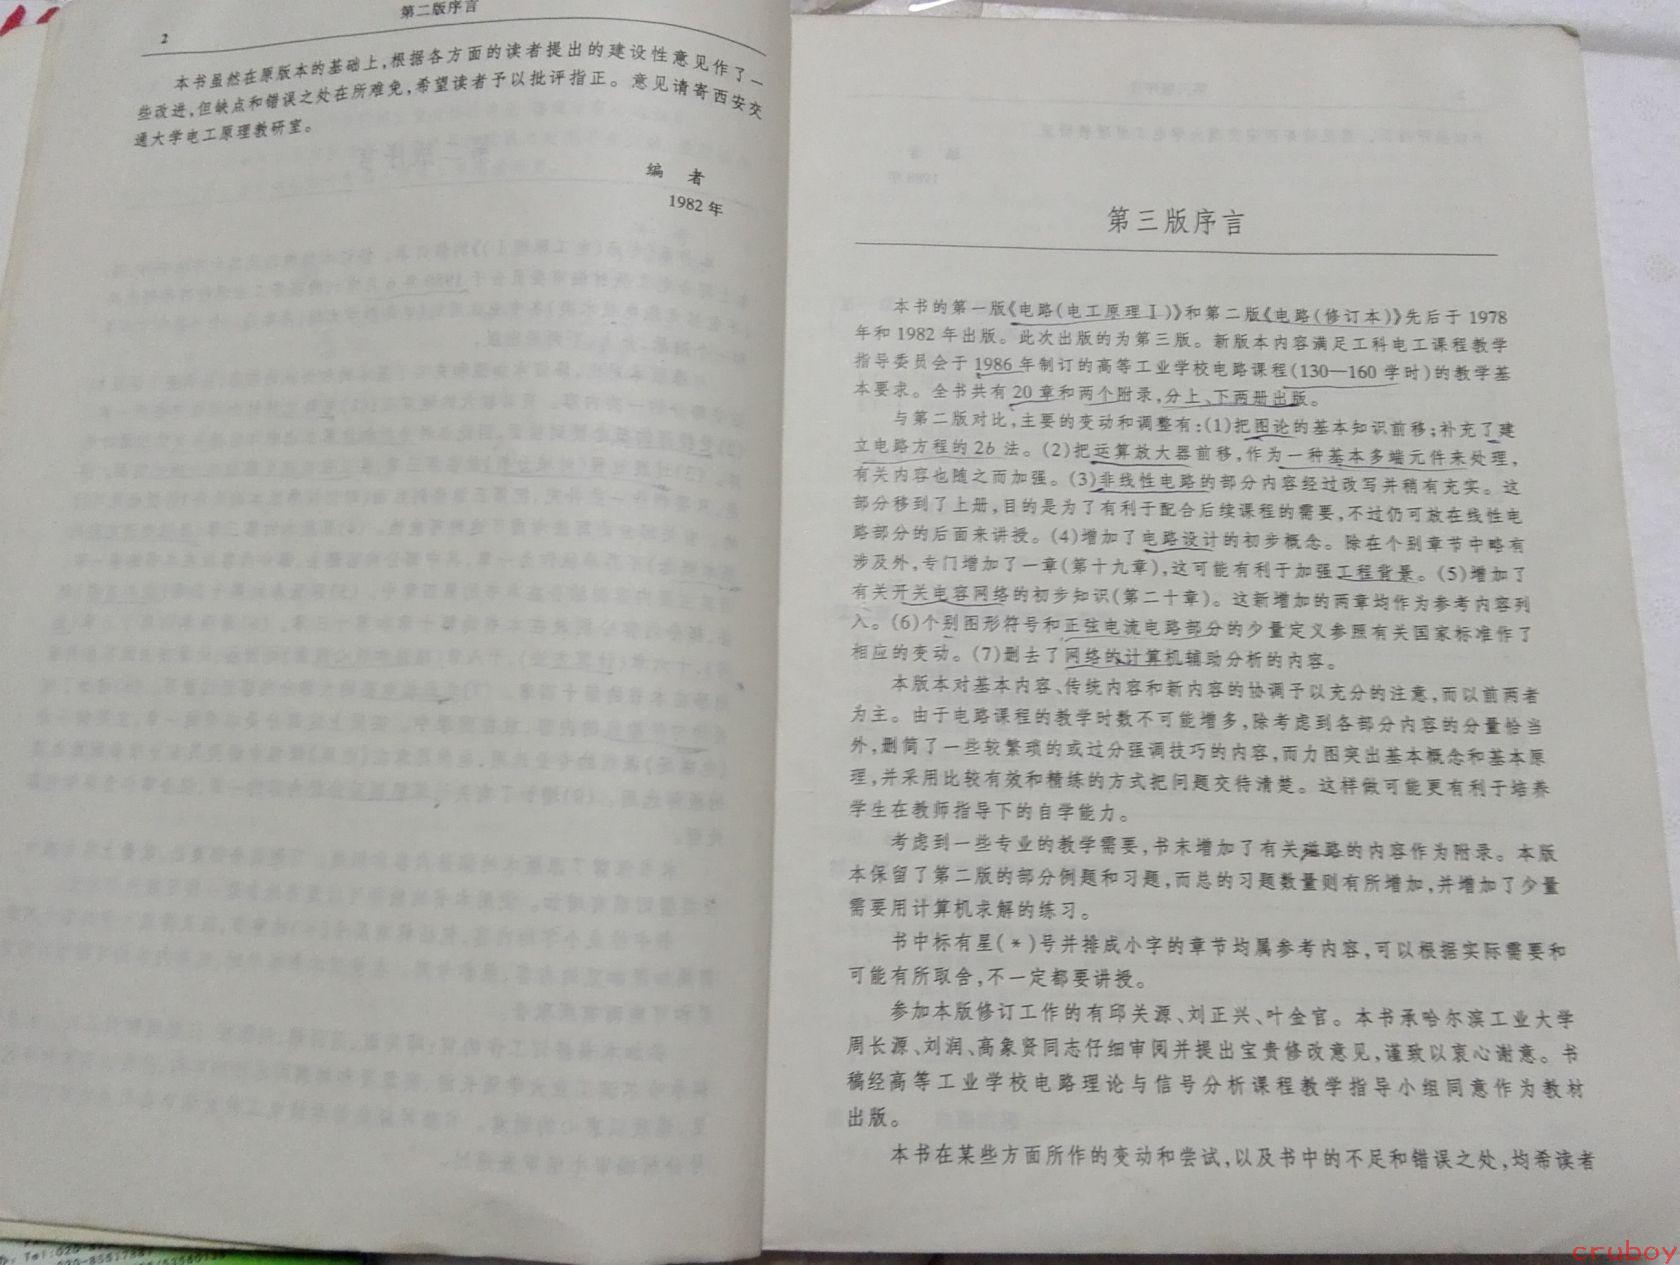 第二版序言
2
本书虽然在原版本的基础上,根据各方面的读者提出的建设性意见作了一
些改进,但缺点和错误之处在所难免,希望读者予以批评指正。意见请寄西安交
通大学电工原理教研室。
编 者
1982 年
第三版序言
本书的第一版《电路(电工原理Ⅰ)》和第二版《电路(修订本)》先后于 1978
年和 1982 年出版。此次出版的为第三版。新版本内容满足工科电工课程教学
指导委员会于 1986 年制订的高等工业学校电路课程(130—160 学时)的教学基
本要求。全书共有 20 章和两个附录,分上、下两册出版。
与第二版对比,主要的变动和调整有:(1)把图论的基本知识前移;补充了建
立电路方程的 2b 法。(2)把运算放大器前移,作为一种基本多端元件来处理,
有关内容也随之而加强。(3)非线性电路的部分内容经过改写并稍有充实。这
部分移到了上册,目的是为了有利于配合后续课程的需要,不过仍可放在线性电
路部分的后面来讲授。(4)增加了电路设计的初步概念。除在个别章节中略有
涉及外,专门增加了一章(第十九章),这可能有利于加强工程背景。(5)增加了
有关开关电容网络的初步知识(第二十章)。这新增加的两章均作为参考内容列
入。(6)个别图形符号和正弦电流电路部分的少量定义参照有关国家标准作了
相应的变动。(7)删去了网络的计算机辅助分析的内容。
本版本对基本内容、传统内容和新内容的协调予以充分的注意,而以前两者
为主。由于电路课程的教学时数不可能增多,除考虑到各部分内容的分量恰当
外,删简了一些较繁琐的或过分强调技巧的内容,而力图突出基本概念和基本原
理,并采用比较有效和精练的方式把问题交待清楚。这样做可能更有利于培养
学生在教师指导下的自学能力。
考虑到一些专业的教学需要,书末增加了有关磁路的内容作为附录。本版
本保留了第二版的部分例题和习题,而总的习题数量则有所增加,并增加了少量
需要用计算机求解的练习。
书中标有星(*)号并排成小字的章节均属参考内容,可以根据实际需要和
可能有所取舍,不一定都要讲授。
参加本版修订工作的有邱关源、刘正兴、叶金官。本书承哈尔滨工业大学
周长源、刘润、高象贤同志仔细审阅并提出宝贵修改意见,谨致以衷心谢意。书
稿经高等工业学校电路理论与信号分析课程教学指导小组同意作为教材
出版。
本书在某些方面所作的变动和尝试,以及书中的不足和错误之处,均希读者
cruboy